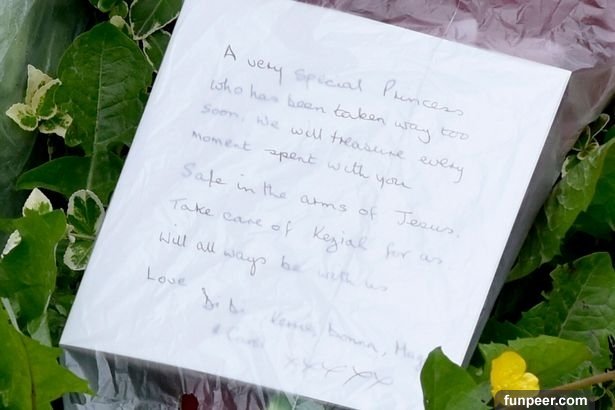 A very special Princess
who has been taken way too
soon. We will treasure every
moment spent with you
Safe in the arms of Jesus.
Take care of Keziah for us.
Will all ways be with us
Love Donna,
xxxxxx
funpeer.com